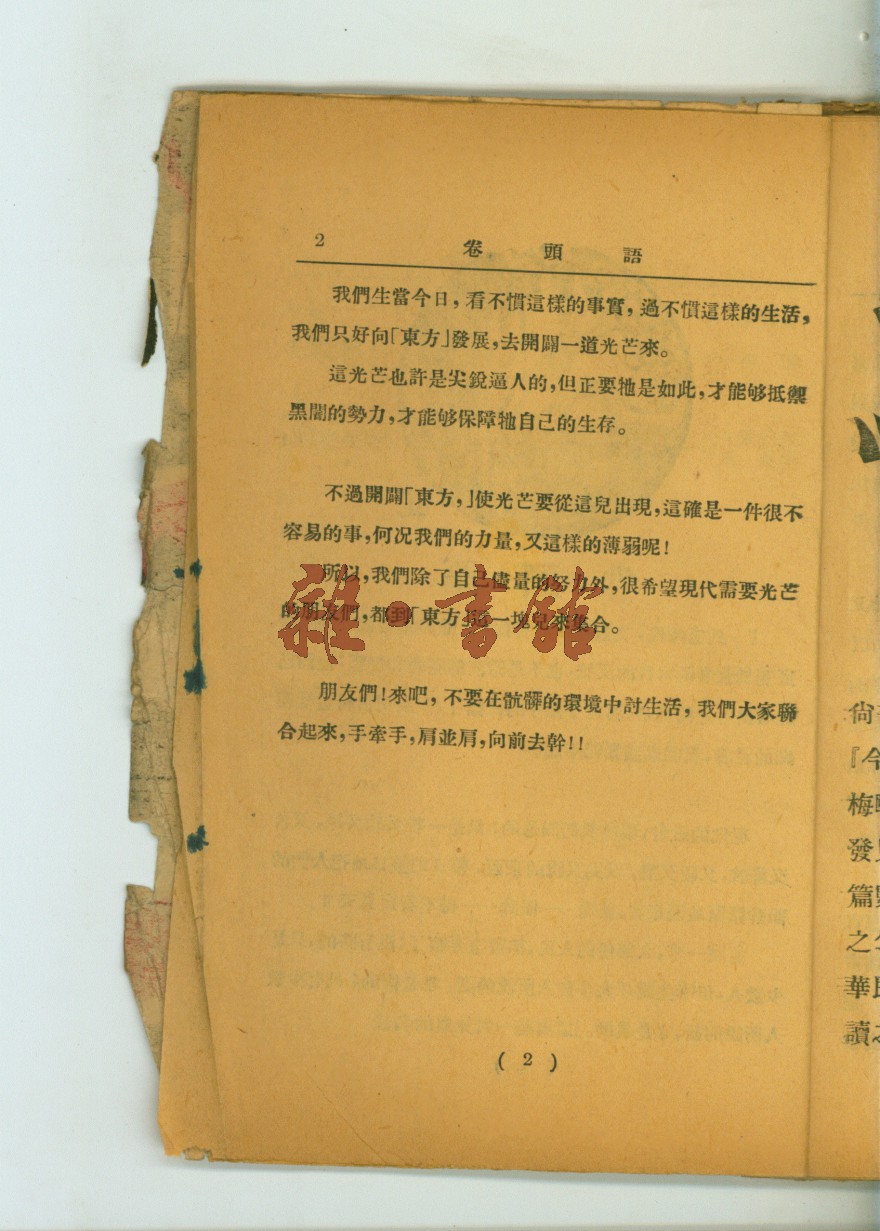 2
卷頭語
我們生當今日，看不慣這樣的事實，過不慣這樣的生活，
我們只好向「東方」發展，去開闢一道光芒來。
這光芒也許是尖銳逼人的，但正要牠是如此，才能够抵禦
黑闇的勢力，才能够保障牠自己的生存。
不過開闢「東方，」使光芒要從這兒出現，這確是一件很不
容易的事，何况我們的力量，又這樣的薄弱呢！
所以，我們除了自己儘量的努力外，很希望現代需要光芒
的朋友們，都到「東方」這一塊兒來集合。
朋友們！來吧，不要在骯髒的環境中討生活，我們大家聯
合起來，手牽手，肩並肩，向前去幹！！
( 2 )
雜·書館
尙
『今
梅
發
篇
之
華
讀